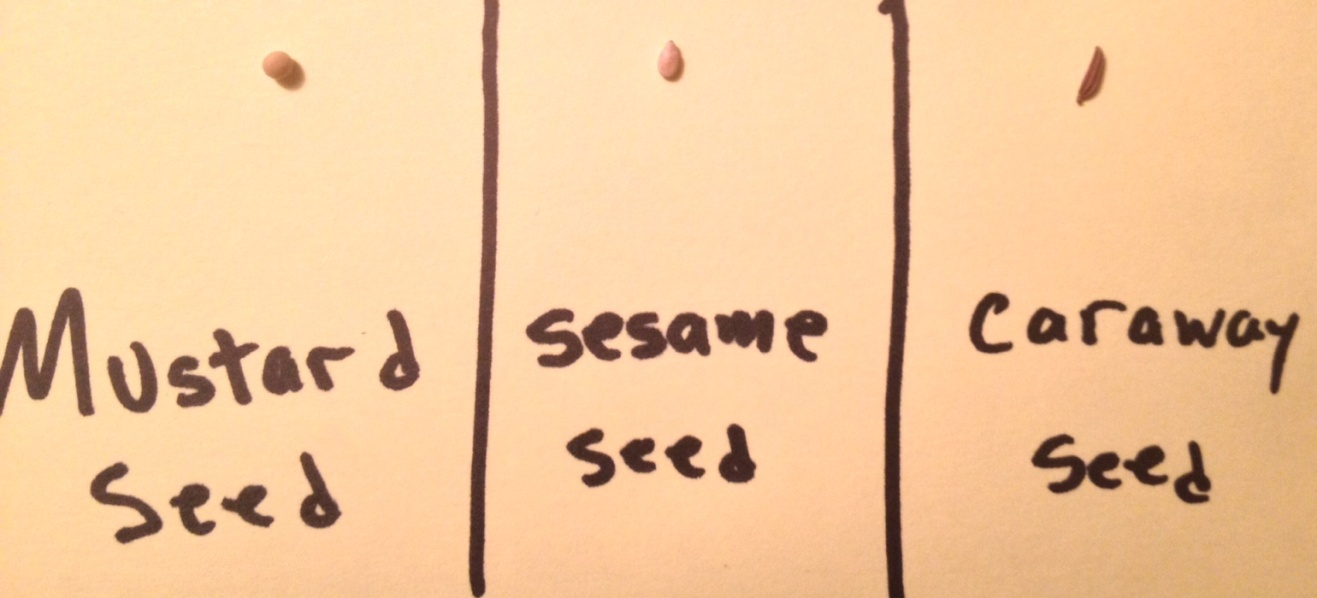 Mustard
Seed
sesame
seed
Caraway
seed